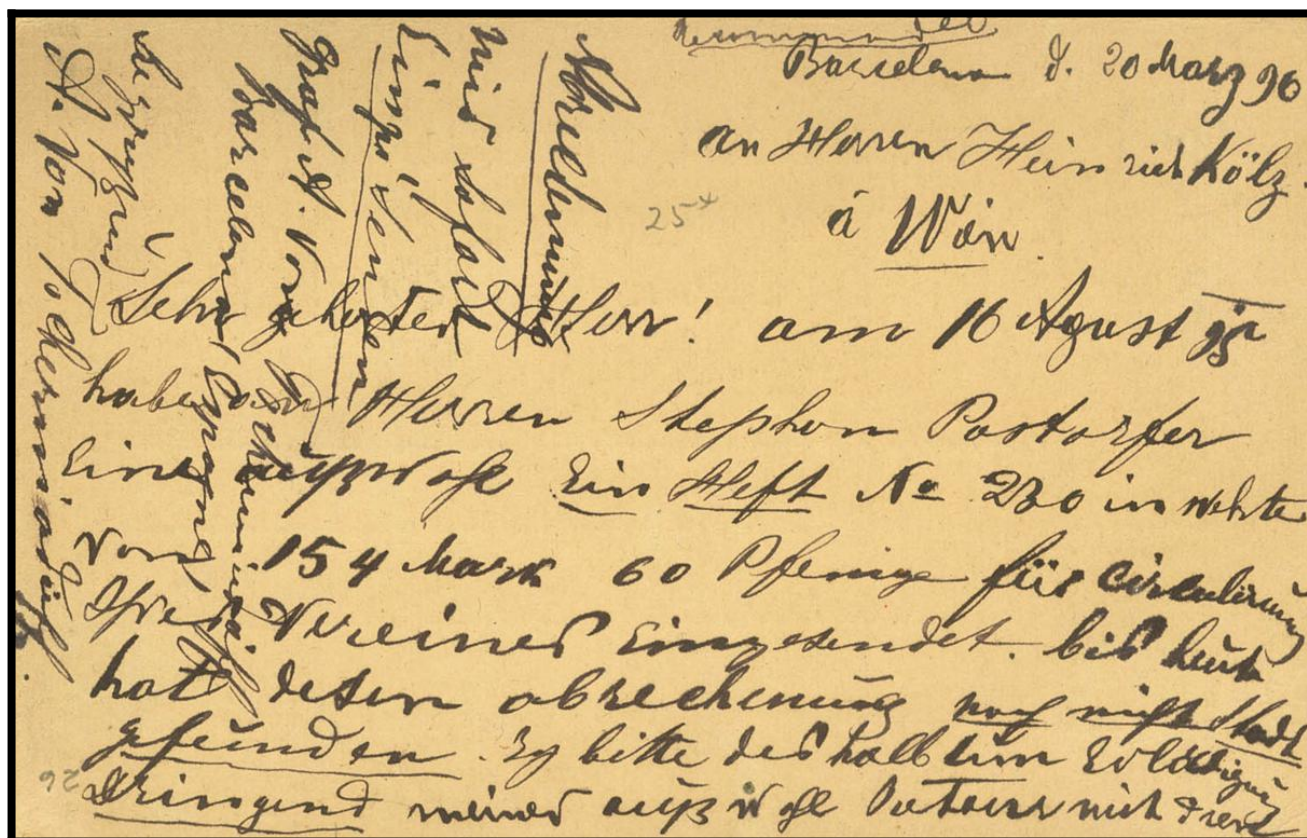 Barcelona d. 20 März 96
an Herren Heinrich Kölz.
á Wien
25x
Sehr geherter Herr! am 16 Agust 95
habe an Herren Stephan Postorfer
Eine außwahl Ein Heft No 230 in wehrte
von 154 Mark 60 Pfenige für circulirung
Ihres Vereines Eingesendet. bis heute
hat desen abrechenung noch nicht Stadt
gefunden. Ich bitte deshalb um Erledigung
Dringend meiner außwahl
26
mir sofort
Einzusenden
Graf A. Von
Barcelona, Espagne,
A. Von